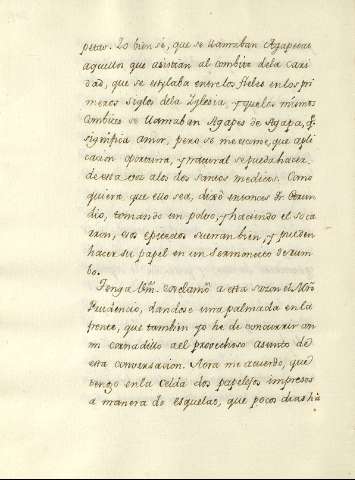 petas. Lo bien sé, que se llamaban Agapetas
aquellos que asistian al combite dela cari
dad, que se estylaba entre los fieles en los pri
meros siglos dela Yglesia, y que los mismos
Combites se llamaban Agapes de Agapa, q.e
significa amor, pero se me esconde, que apli
cacion oportuna, y natural se pueda hacer
de esta voz alos dos santos medicos. Como
quiera que ello sea, dixo entonces Fr. Gerun
dio, tomando un polvo, y haciendo el soca
rron, esos epictetos suenan bien, y pueden
hacer su papel en un sermoncito de rum
bo.
Tenga Vm. exclamó a esta sazon el Mro
Prudencio, dandose una palmada en la
frente, que tambien yo he de concurrir con
mi cornadillo ael provechoso asunto de
esta conversacion. Aora me acuerdo, que
tengo en la Celda dos papelejos impresos
a manera de esquelas, que pocos dias hà